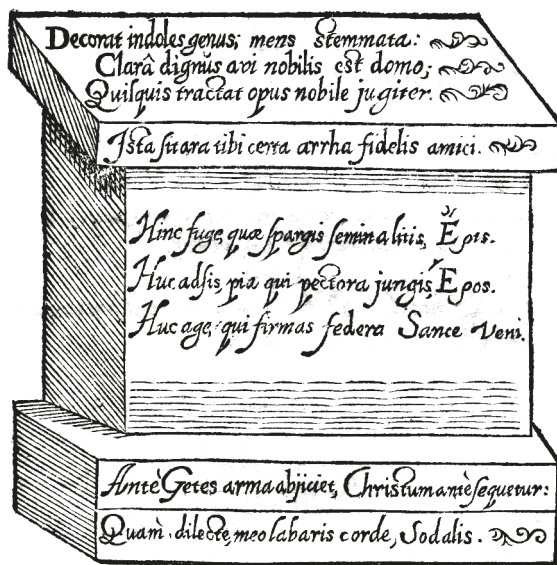 Decorat indoles genus; mens stemmata:
Clarâ dignus avi nobilis est domo;
Quisquis tractat opus nobile jugiter.
Ista sit ara tibi certa arrha fidelis amici.
Hinc fuge, quæ spargis semina litis, Ἔρις.
Huc adsis, pia qui pectora jungis, Ἔρος.
Huc age, qui firmas federa Sance Veni.
Antè Getes arma abjiciet, Christum antè sequetur:
Quam, dilecte, meo labaris corde, Sodalis.